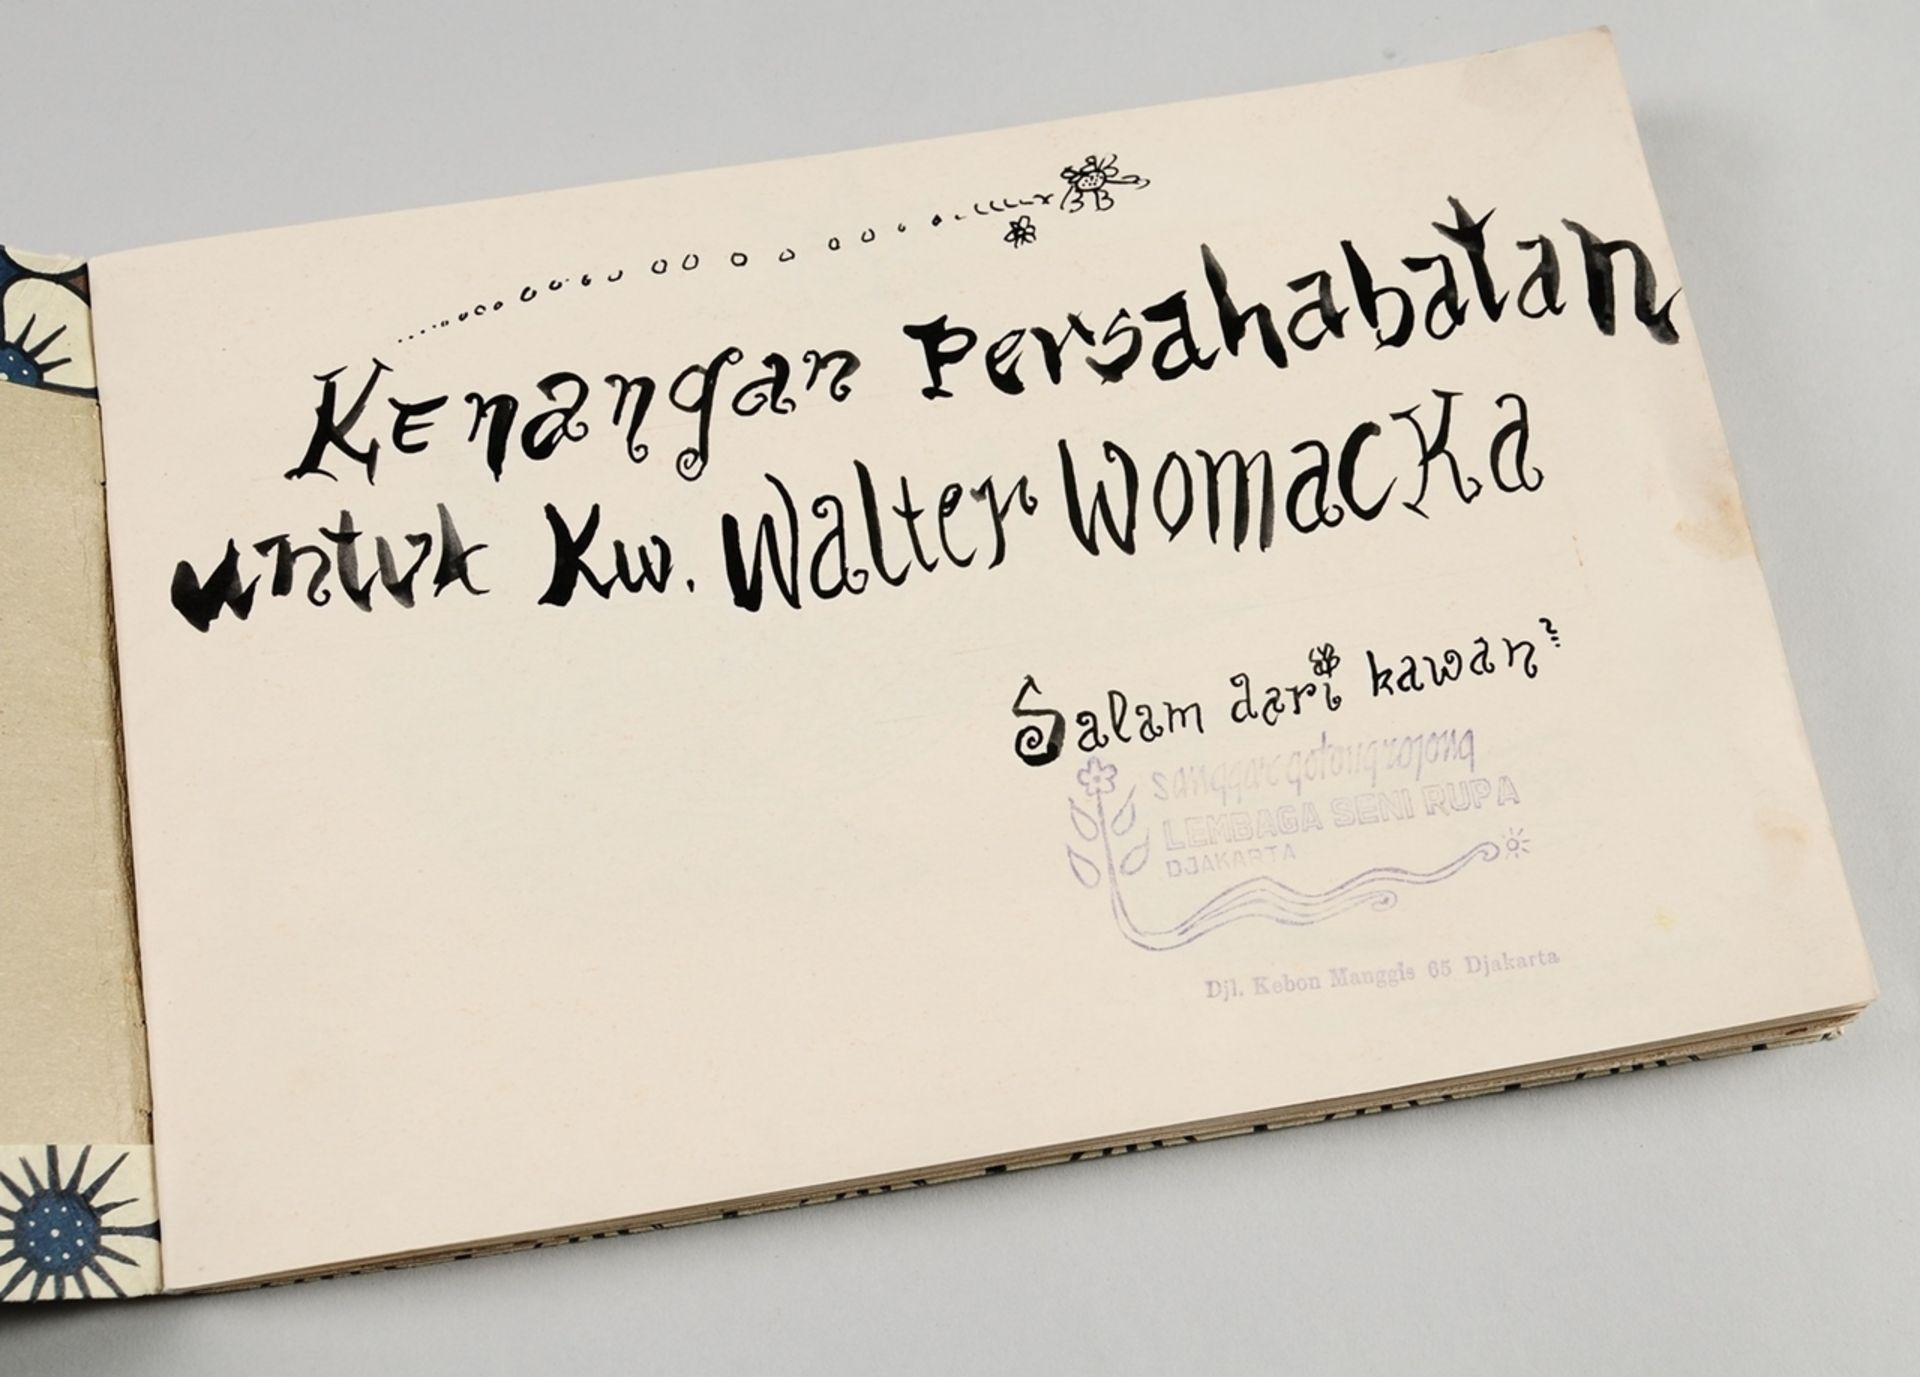 Kenangan Persahabatan
untuk Kw. Walter Womacka
Salam dari kawan²:
sanggar gotongrojong
LEMBAGA SENI RUPA
DJAKARTA
Djl. Kebon Manggis 65 Djakarta